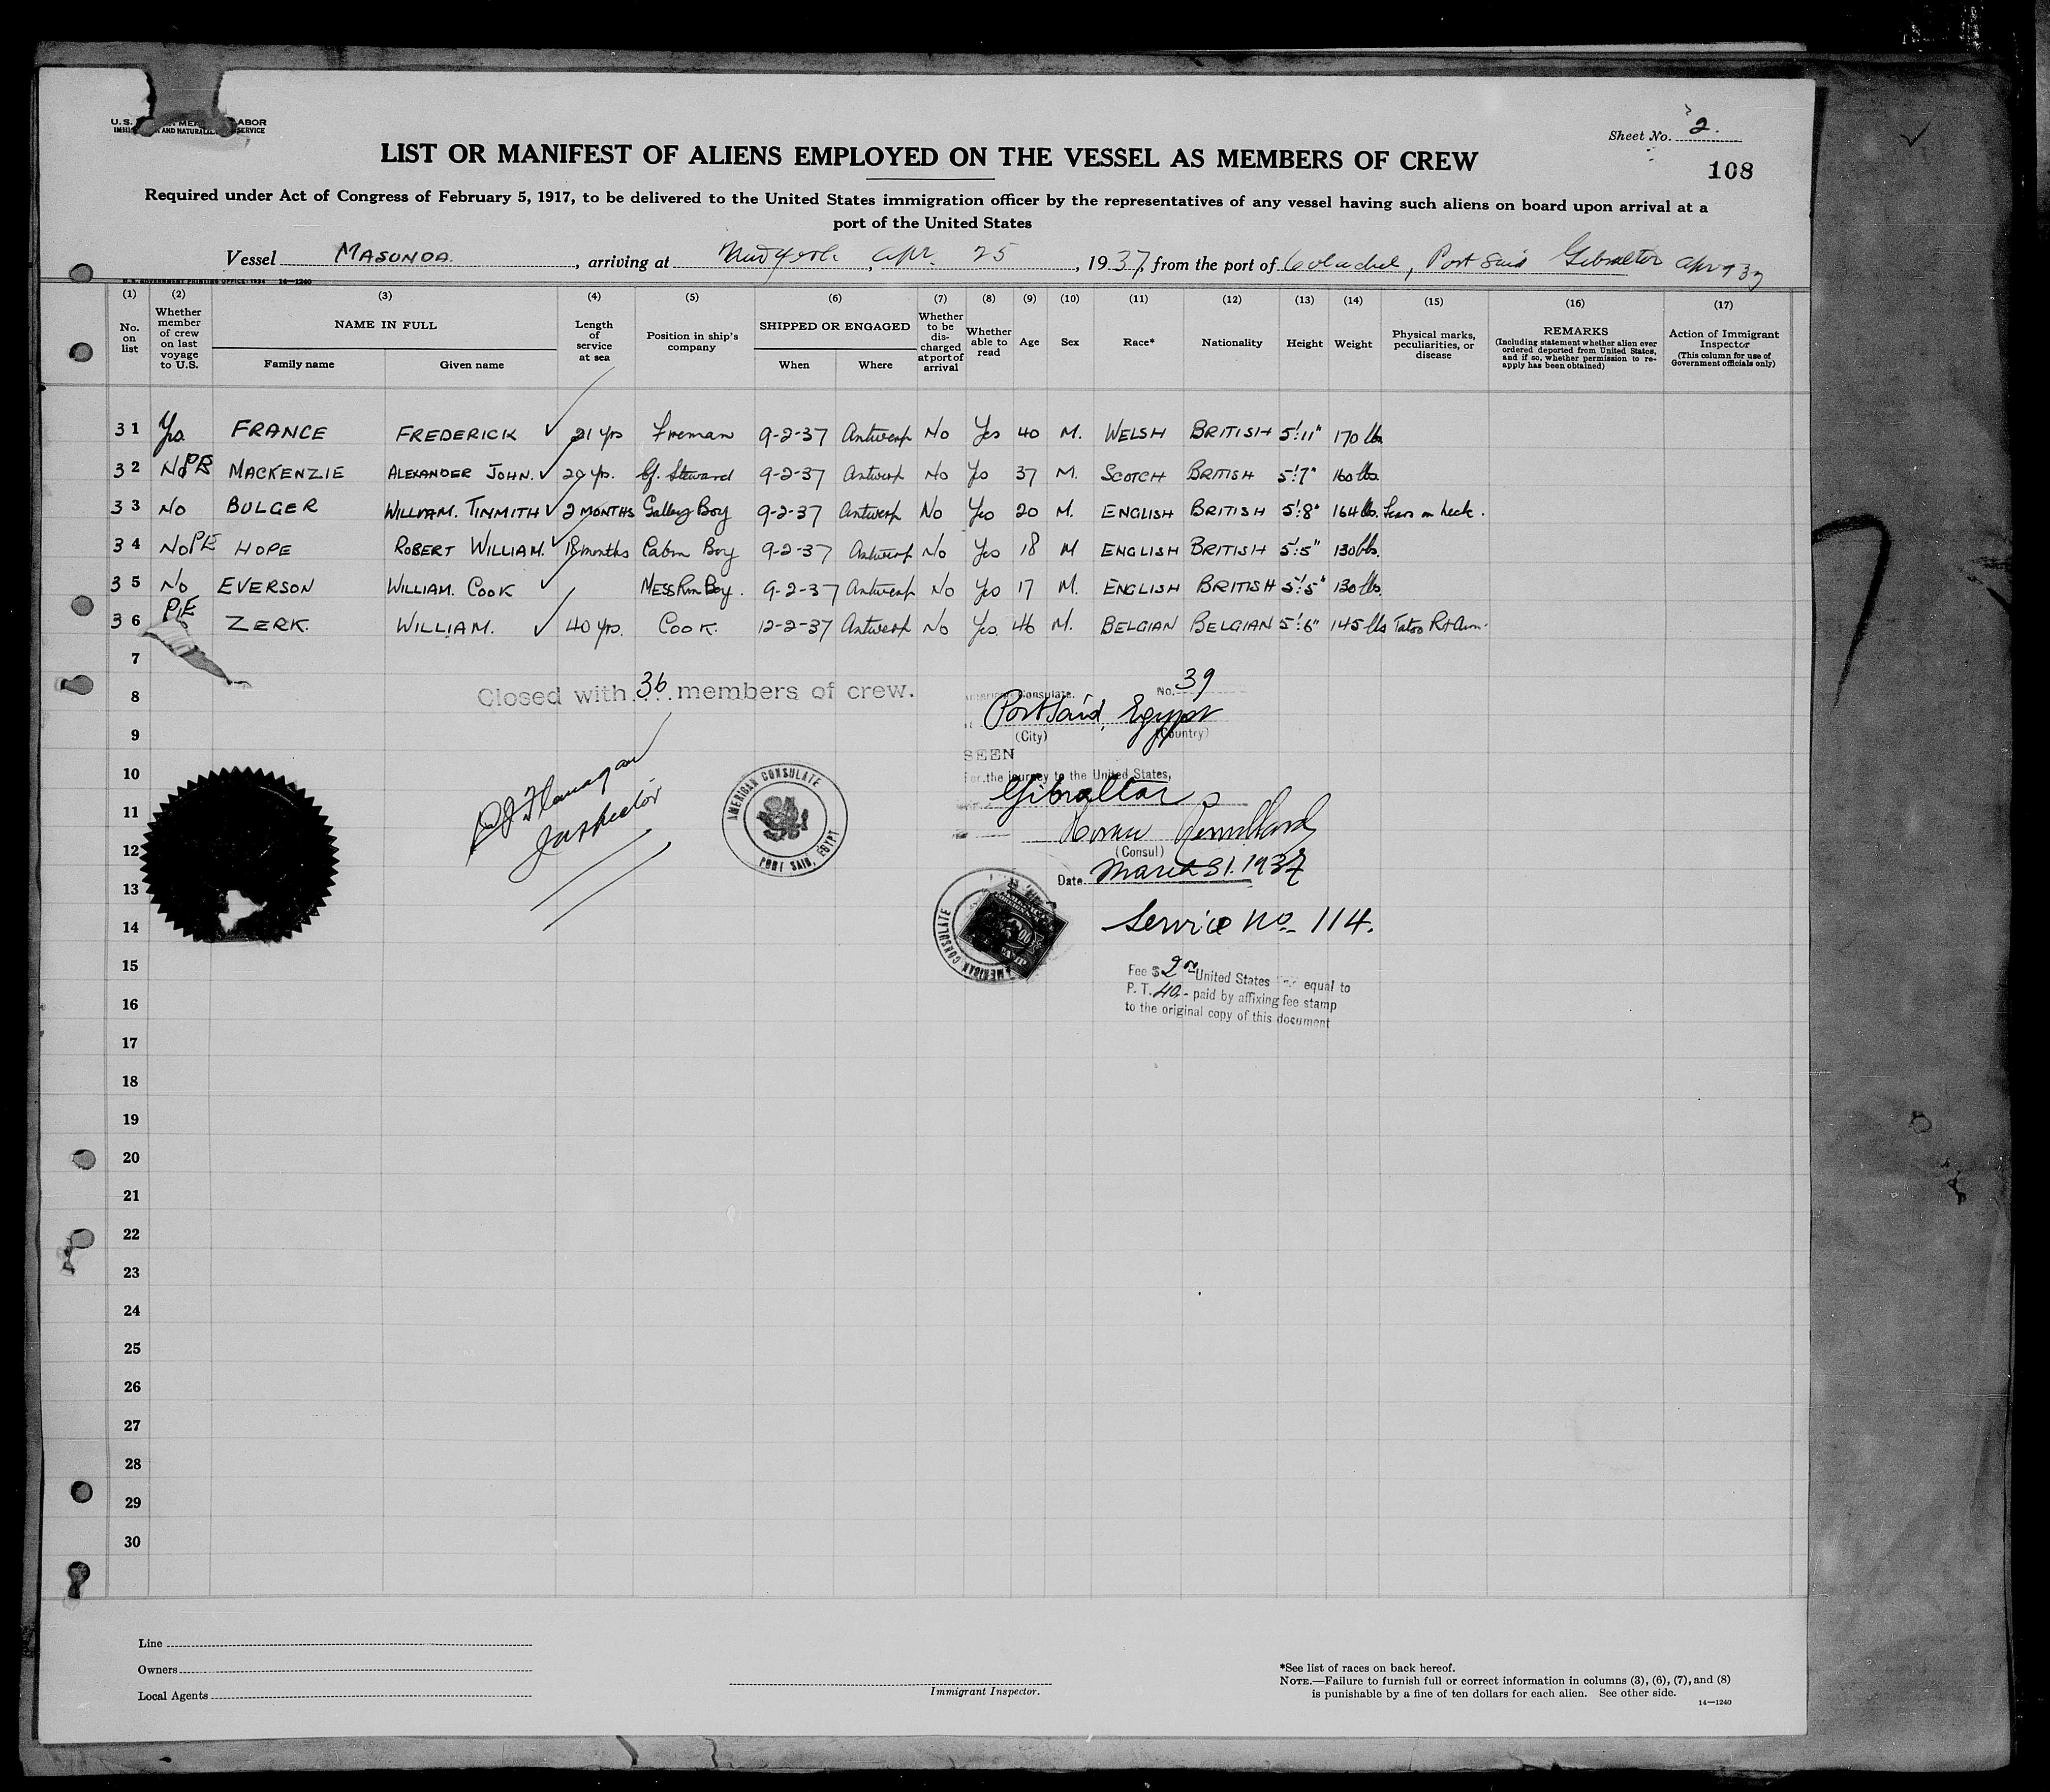 U.S. LABOR
AND SERVICE
Sheet No. 2.
LIST OR MANIFEST OF ALIENS EMPLOYED ON THE VESSEL AS MEMBERS OF CREW
108
Required under Act of Congress of February 5, 1917, to be delivered to the United States immigration officer by the representatives of any vessel having such aliens on board upon arrival at a
port of the United States
Vessel MASUNDA., arriving at New York, Apr. 25, 1937, from the port of , Port Said Gibraltar
U.S. GOVERNMENT PRINTING OFFICE: 1934 14—1240
(1) (2) (3) (4) (5) (6) (7) (8) (9) (10) (11) (12) (13) (14) (15) (16) (17)
No. on list Whether member of crew on last voyage to U.S. NAME IN FULL Length of service at sea Position in ship's company SHIPPED OR ENGAGED Whether to be discharged at port of arrival Whether able to read Age Sex Race* Nationality Height Weight Physical marks, peculiarities, or disease REMARKS (Including statement whether alien ever ordered deported from United States, and if so, whether permission to reapply has been obtained) Action of Immigrant Inspector (This column for use of Government officials only)
Family name Given name When Where
31 Yes FRANCE FREDERICK ✓ 21 yrs Fireman 9-2-37 Antwerp No Yes 40 M. WELSH BRITISH 5'.11" 170 lbs
32 No PE MACKENZIE ALEXANDER JOHN. ✓ 20 yrs. Cf. Steward 9-2-37 Antwerp No Yes 37 M. SCOTCH BRITISH 5'.7" 160 lbs.
33 No BULGER WILLIAM. TINMITH ✓ 2 MONTHS Galley Boy 9-2-37 Antwerp No Yes 20 M. ENGLISH BRITISH 5'.8" 164 lbs. Scars on neck.
34 No PE HOPE ROBERT WILLIAM. ✓ 18 months Cabin Boy 9-2-37 Antwerp No Yes 18 M ENGLISH BRITISH 5'.5" 130 lbs.
35 No EVERSON WILLIAM. COOK ✓ MESS Rm Boy. 9-2-37 Antwerp No Yes 17 M. ENGLISH BRITISH 5'.5" 130 lbs.
36 PE ZERK. WILLIAM. ✓ 40 yrs. COOK. 12-2-37 Antwerp No Yes. 46 M. BELGIAN BELGIAN 5'.6" 145 lbs Tatoo Rt Arm.
7
Closed with 36 members of crew.
American Consulate. No. 39
8
Port Said, Egypt
9
(City) (Country)
SEEN
10
For the journey to the United States,
Gibraltar
P J Flanagan
Inspector
AMERICAN CONSULATE
PORT SAID, EGYPT
11
12
(Consul)
Date March 31. 1937
13
AMERICAN CONSULATE
14
Service No. 114.
15
Fee $2 00 United States equal to
P. T. 40- paid by affixing fee stamp
to the original copy of this document
16
17
18
19
20
21
22
23
24
25
26
27
28
29
30
Line
Owners
Local Agents
Immigrant Inspector.
*See list of races on back hereof.
NOTE.—Failure to furnish full or correct information in columns (3), (6), (7), and (8)
is punishable by a fine of ten dollars for each alien. See other side.
14—1240